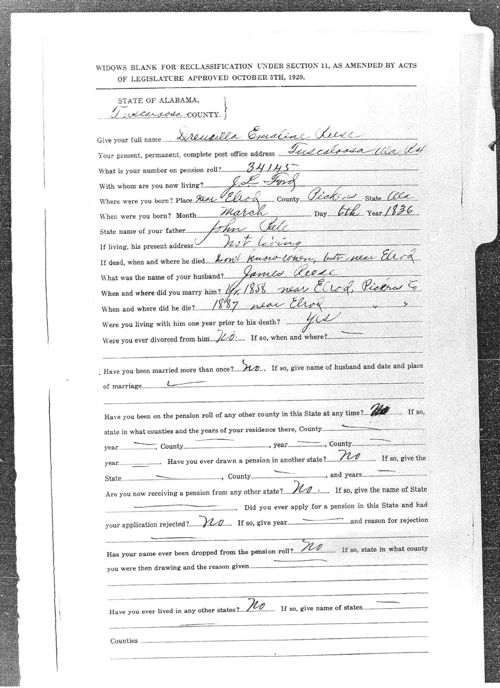 WIDOWS BLANK FOR RECLASSIFICATION UNDER SECTION 11, AS AMENDED BY ACTS
OF LEGISLATURE APPROVED OCTOBER 5TH, 1920.
STATE OF ALABAMA,
Tuscaloosa COUNTY.
Give your full name Drewsilla Emaline Reese
Your present, permanent, complete post office address Tuscaloosa Ala R4
What is your number on pension roll? 34145
With whom are you now living? J. L. Ford
Where were you born? Place near Elrod County Pickens State Ala
When were you born? Month March Day 6th Year 1836
State name of your father John Pate
If living, his present address Not living
If dead, when and where he died don't know when, but near Elrod
What was the name of your husband? James Reese
When and where did you marry him? 1858 near Elrod, Pickens Co
When and where did he die? 1887 near Elrod " "
Were you living with him one year prior to his death? Yes
Were you ever divorced from him No. If so, when and where?
Have you been married more than once? No. If so, give name of husband and date and place
of marriage
Have you been on the pension roll of any other county in this State at any time? No If so,
state in what counties and the years of your residence there, County
year , County , year , County
year . Have you ever drawn a pension in another state? No If so, give the
State , County , and years
Are you now receiving a pension from any other state? No. If so, give the name of State
. Did you ever apply for a pension in this State and had
your application rejected? No If so, give year and reason for rejection
Has your name ever been dropped from the pension roll? No If so, state in what county
you were then drawing and the reason given
Have you ever lived in any other states? No If so, give name of states
Counties